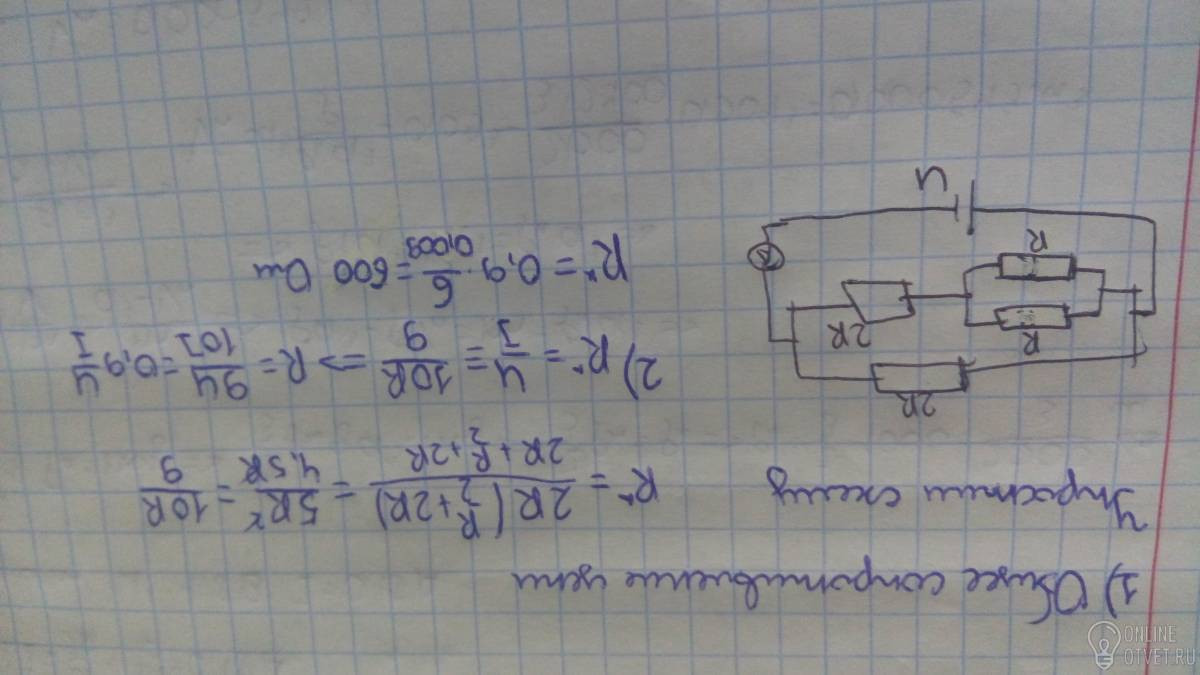 1) Общее сопротивление цепи
Упростим схему
R" = 2R(R/2+2R) / 2R+R/2+2R = 5R²/4,5R = 10R/9
2R
R
2R
R
U
2) R" = U/I = 10R/9 => R = 9U/10I = 0,9 U/I
R" = 0,9 · 6/0,009 = 600 Ом
ONLINE
OTVET.RU